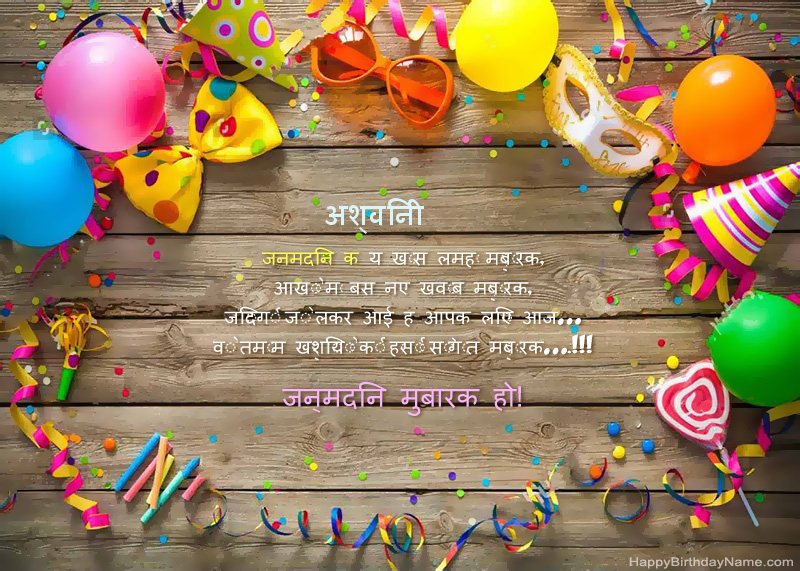 अश्विनी
जन्मदिन के ये ख़ास लम्हें मुबारक,
आँखों में बसे नए ख्वाब मुबारक,
जिंदगी जो लेकर आई है आपके लिए आज...
वो तमाम खुशियों की हंसीं सौगात मुबारक...!!!
जन्मदिन मुबारक हो!
HappyBirthdayName.com